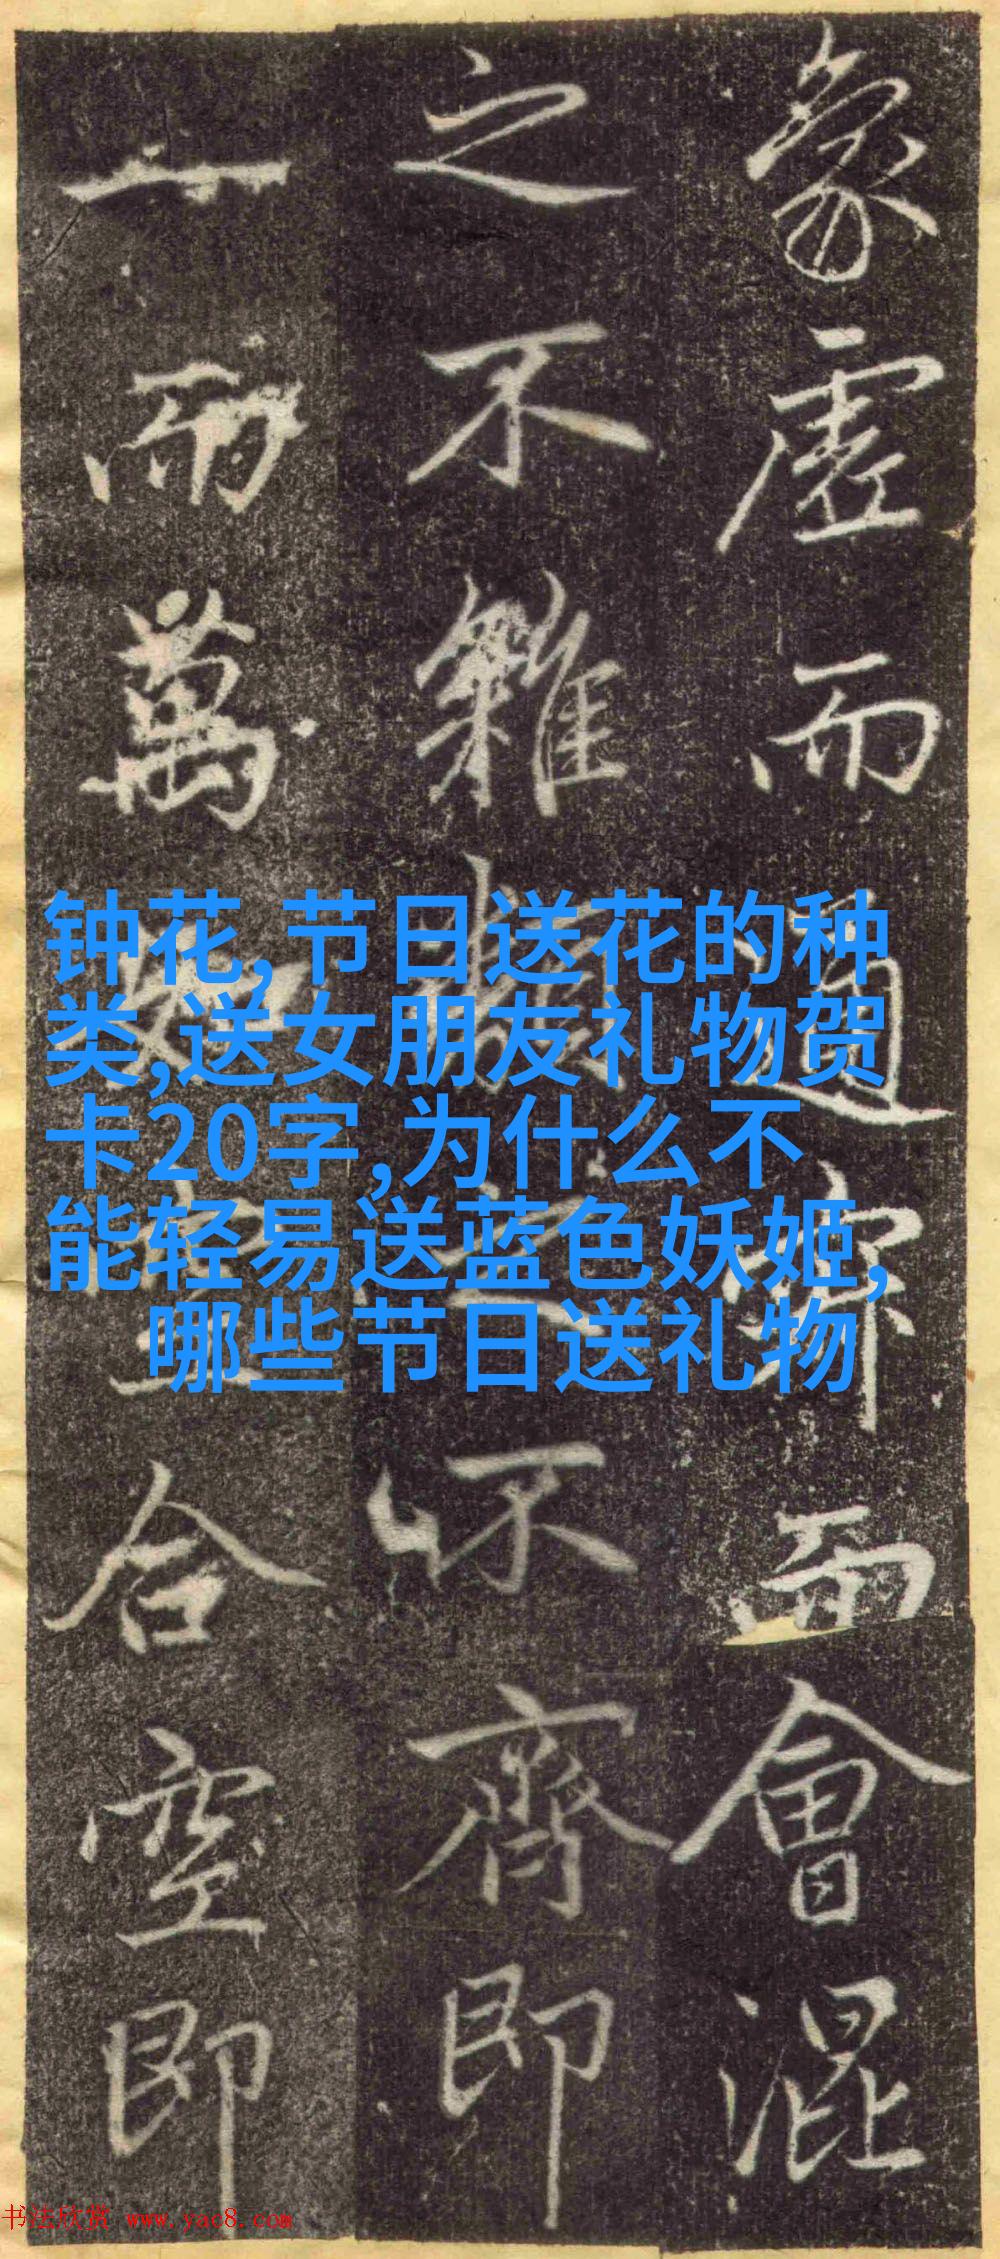 象虛而
會混
之不雜
不齊即
一而萬
合空即
钟花,节日送花的种
类,送女朋友礼物贺
卡20字,为什么不
能轻易送蓝色妖姬,
哪些节日送礼物
书法欣赏 www.yac8.com